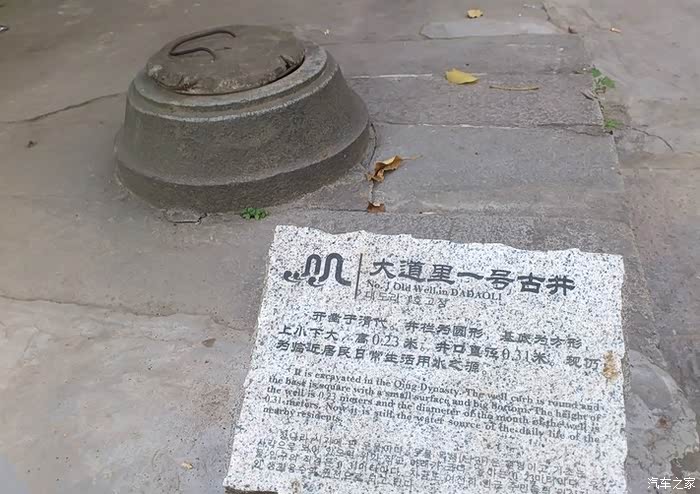 大道里一号古井
No.1 Old Well in DADAOLI
다도리 1호 고정
开凿于清代。井栏为圆形，基底为方形，
上小下大，高0.23米，井口直径0.31米，现仍
为临近居民日常生活用水之源
It is excavated in the Qing Dynasty. The well curb is round and
the base is square with a small surface and big bottom. The height of
the well is 0.23 meters and the diameter of the mouth of the well is
0.31 meters. Now it is still the water source of the daily life of the
nearby residents.
汽车之家